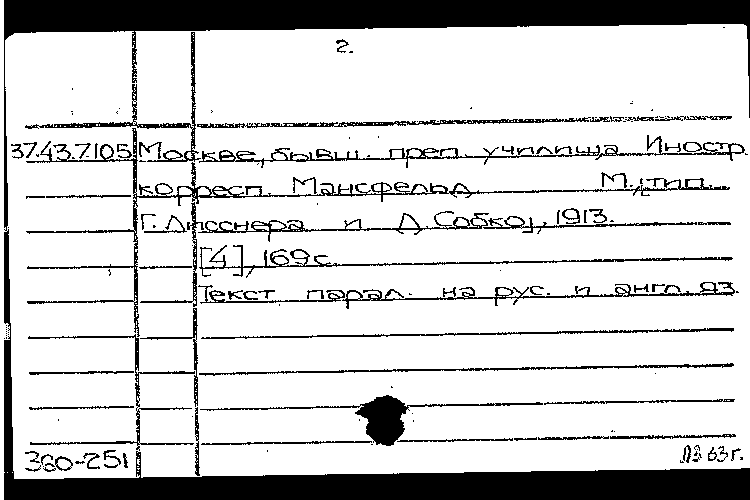 2.
37.43.7105 Москве, бывш. преп. училища Иностр.
корресп. Мансфельд. М., тип.
Г. Лисснера и Д. Собко, 1913.
[4], 169 с.
Текст парал. на рус. и англ. яз.
360-251 ЛЗ 63 г.